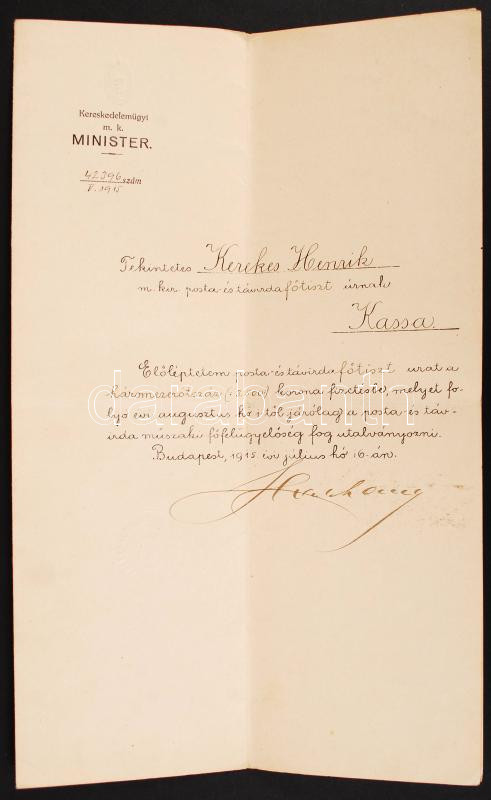 Kereskedelemügyi
m. k.
MINISTER.
42396 szám
V. 1915
Tekintetes Kerekes Henrik
m. kir. posta-és távirdafőtiszt úrnak
Kassa
Előléptetem posta-és távirdafőtiszt urat a
korona fizetésbe, melyet fo-
lyó évi augusztus hó 1től járólag a posta-és táv-
irda műszaki főfelügyelőség fog utalványozni.
Budapest, 1915 évi július hó 16-án.
darabanth